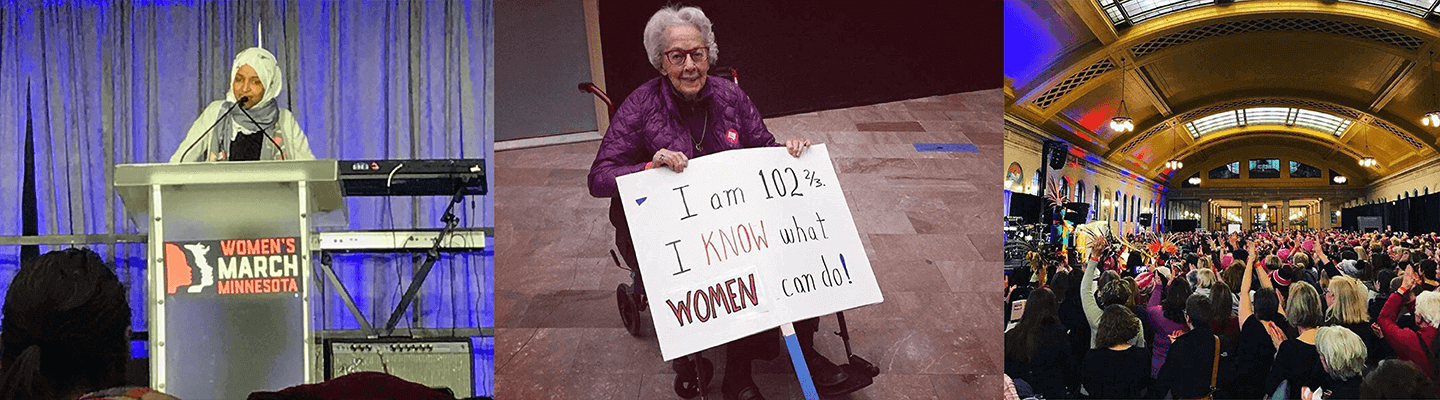 WOMEN'S
MARCH
MINNESOTA
I am 102 2/3.
I KNOW what
WOMEN can do!